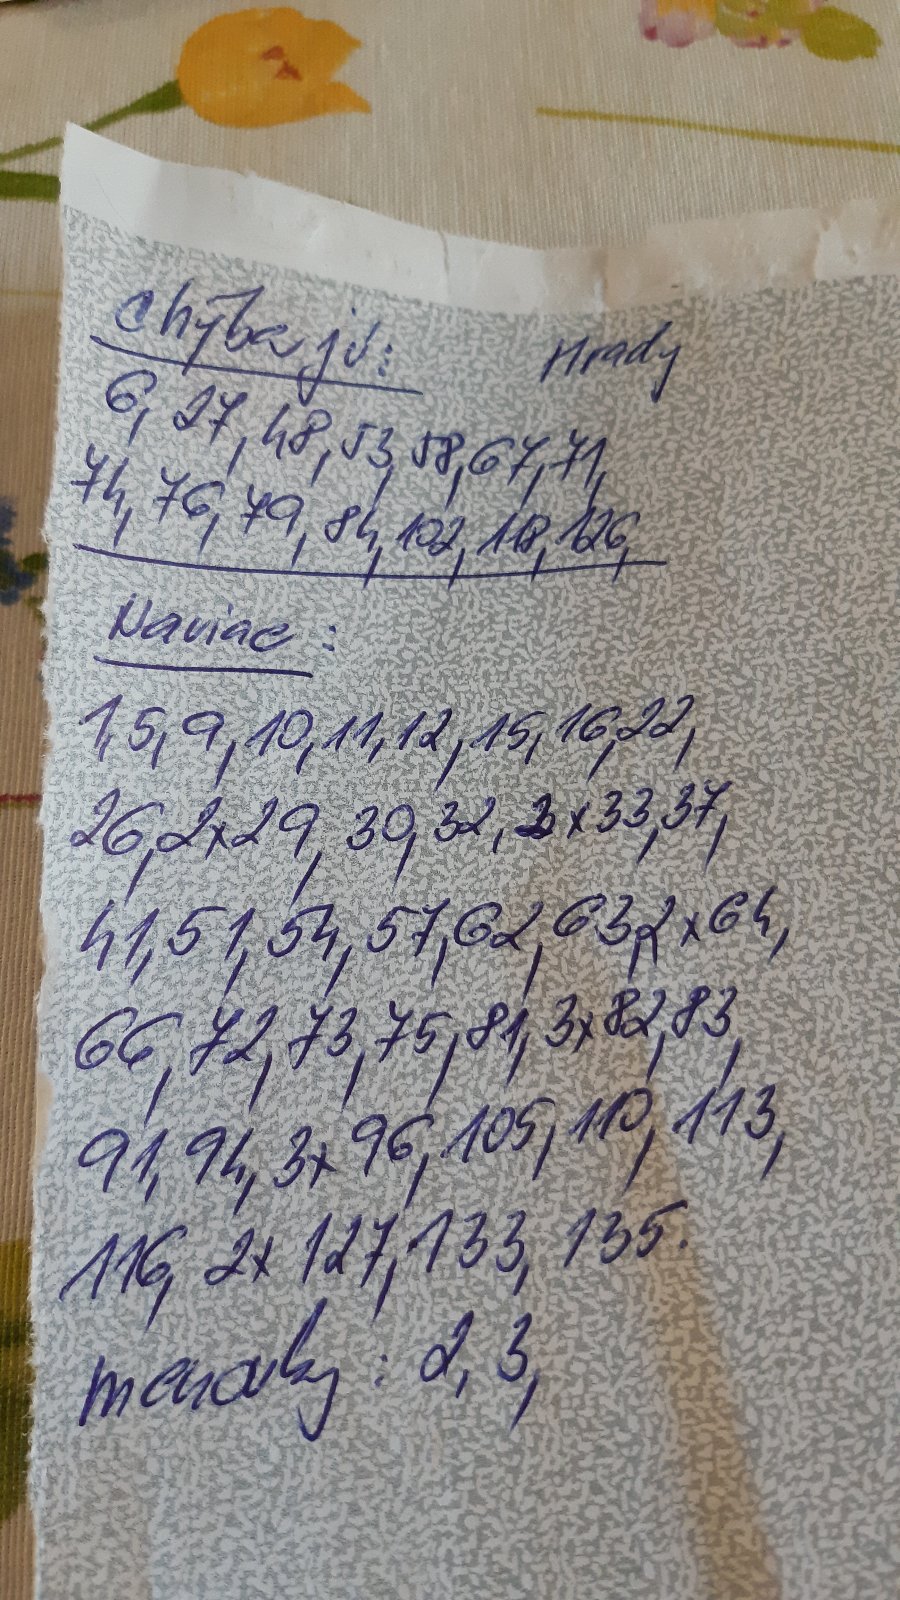 Chýbajú: Hrady
6, 27, 48, 53, 58, 67, 71,
74, 76, 79, 84, 102, 118, 126,
Naviac:
1, 5, 9, 10, 11, 12, 15, 16, 22,
26, 2x29, 30, 32, 3x33, 37,
41, 51, 54, 57, 62, 63, 2x64,
66, 72, 73, 75, 81, 3x82, 83,
91, 94, 3x96, 105, 110, 113,
116, 2x127, 133, 135.
: 2, 3,